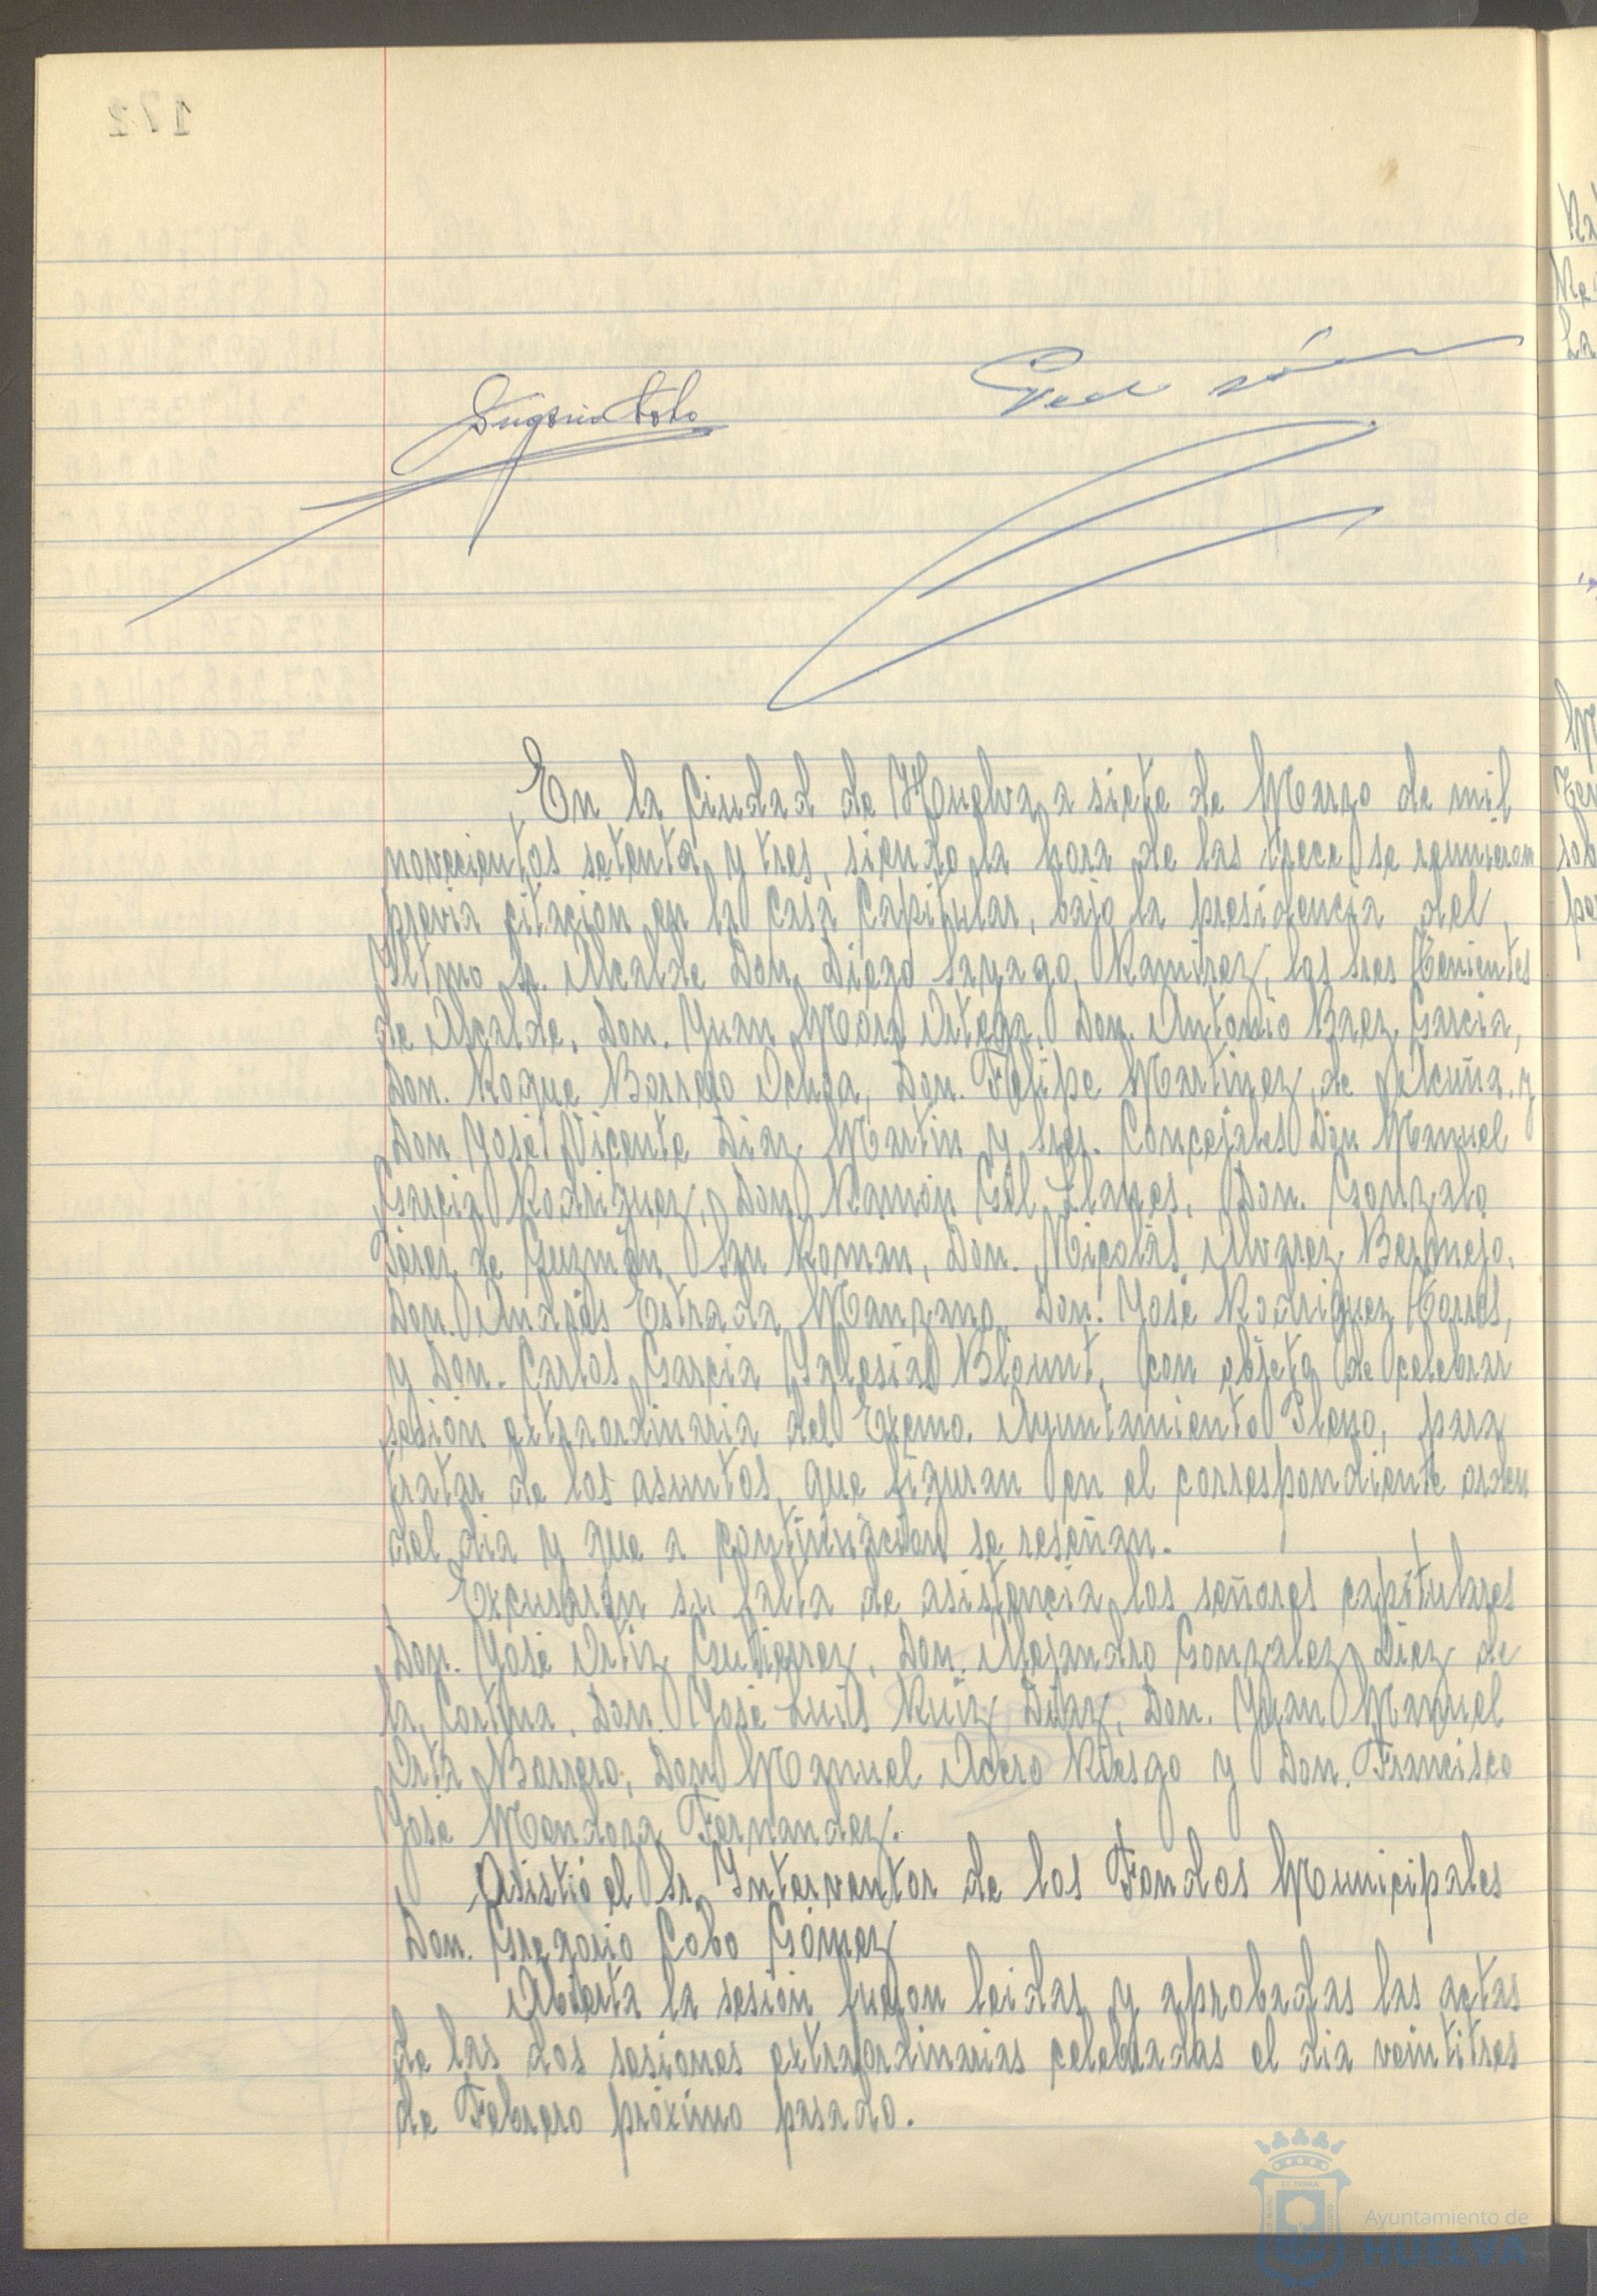 En la Ciudad de Huelva, a siete de Marzo de mil
novecientos setenta y tres, siendo la hora de las trece se reunieron
previa citacion en la Casa Capitular, bajo la presidencia del
Iltmo Sr. Alcalde Don Diego Sayago Ramirez, los Sres Tenientes
de Alcalde, Don. Juan Mora Ortega, Don. Antonio Baez Garcia,
Don. Roque Borrero Ochoa, Don. Felipe Martinez de Acuña, y
Don José Vicente Diaz Martin y Sres. Concejales Don Manuel
Garcia Rodriguez, Don Ramón Gil Llanes, Don. Gonzalo
Pérez de Guzmán San Roman, Don. Nicolás Alvarez Bermejo,
Don. Andrés Estrada Manzano, Don. José Rodriguez Torres,
y Don. Carlos Garcia Yglesias Blount, con objeto de celebrar
sesion extraordinaria del Excmo. Ayuntamiento Pleno, para
tratar de los asuntos, que figuran en el correspondiente orden
del dia y que a continuación se reseñan.
Excusarón su falta de asistencia los señores capitulares
Don. José Ortiz Gutierrez, Don. Alejandro Gonzalez Diez de
la Cortina, Don. José Luis Ruiz Diaz, Don. Juan Manuel
Orta Borrero, Don Manuel Acero Riesgo y Don. Francisco
José Mendoza Fernandez.
Asistió el Sr. Interventor de los Fondos Municipales
Don. Gregorio Cobo Gómez
Abierta la sesión fueron leidas y aprobadas las actas
de las dos sesiones extraordinarias celebradas el dia veintitres
de Febrero próximo pasado.
Ayuntamiento de
HUELVA